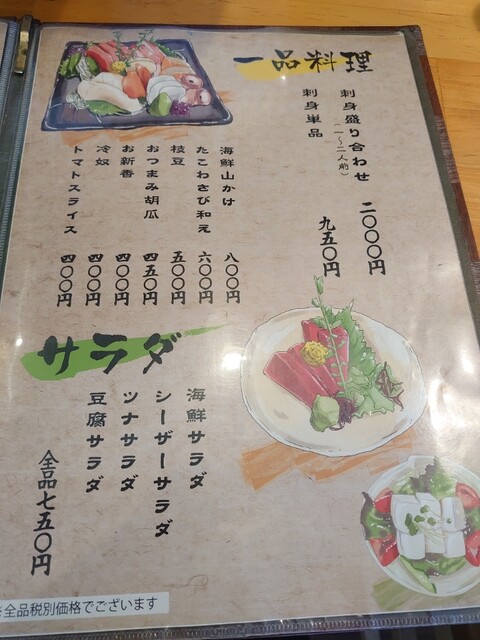 一品料理
刺身盛り合わせ
(一〜二人前)
二〇〇〇円
刺身単品
九五〇円
海鮮山かけ
八〇〇円
たこわさび和え
六〇〇円
枝豆
五〇〇円
おつまみ胡瓜
四五〇円
お新香
四〇〇円
冷奴
四〇〇円
トマトスライス
四〇〇円
サラダ
海鮮サラダ
シーザーサラダ
ツナサラダ
豆腐サラダ
全品七五〇円
※全品税別価格でございます